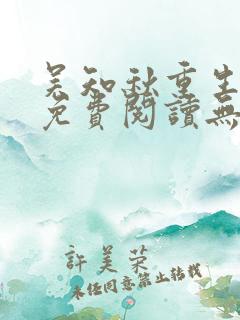 吳知秋重生
免費閱讀無
許美榮
未經同意禁止轉載